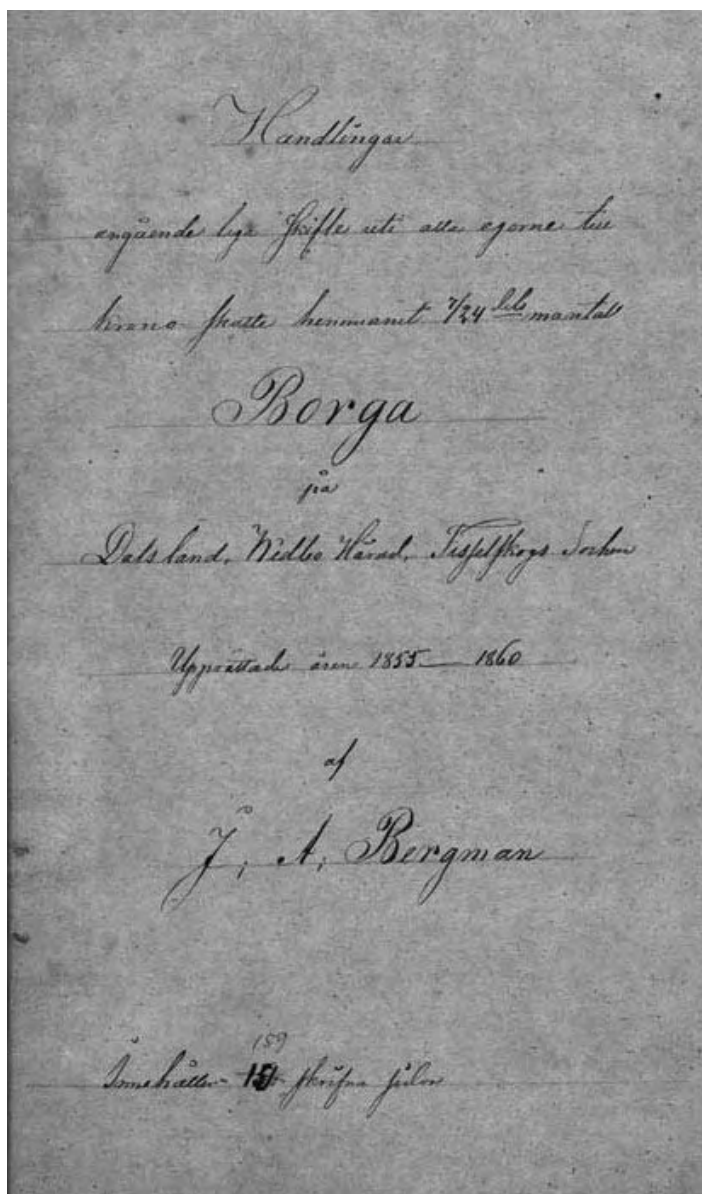 Handlingar
angående laga skifte uti alla egorne till
krono skatte hemmanet 7/24 dels mantal
Borga
på
Dalsland, Wedbo Härad, Tisselskogs Socken
Upprättade åren 1855 — 1860
af
J. A. Bergman
159
Innehåller skrifna sidor